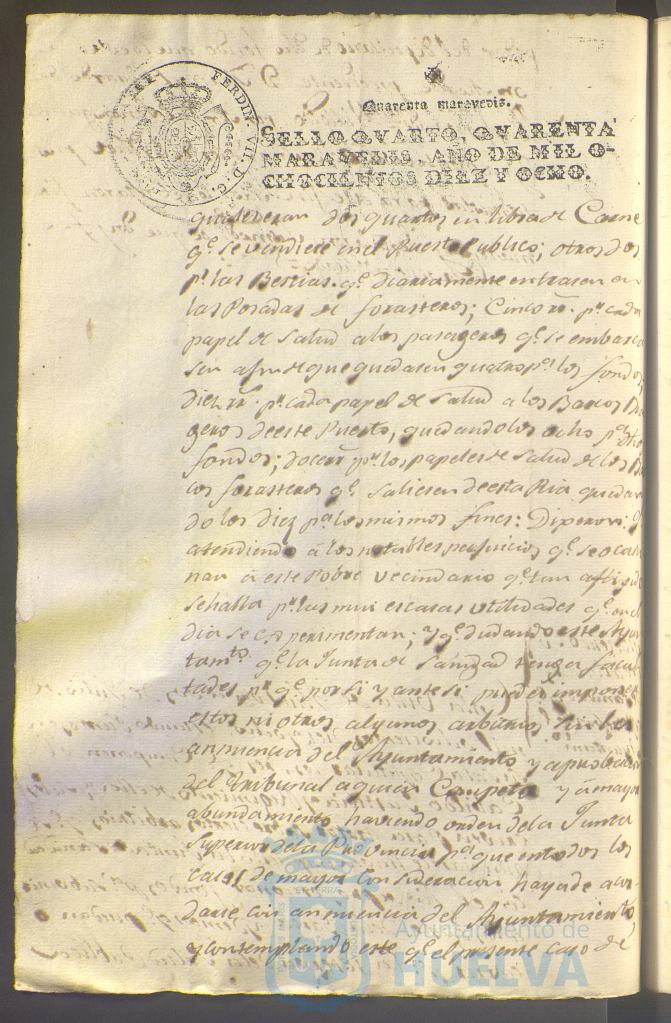 FERDIN. VII. D. G.
Quarenta maravedis.
SELLO QVARTO, QVARENTA
MARAVEDIS, AÑO DE MIL O-
CHOCIENTOS DIEZ Y OCHO.
dos quartos en libra de Carne
q.e se vendiese en el Puesto Publico; otros dos
p.r las Bestias q.e diariamente entrasen en
las Posadas de forasteros; Cinco r.s p.r cada
papel de Salud a los pasageros q.e se embarca
sen a fin de que quedasen quatro p.a los fondos,
diez r.s p.r cada papel de Salud a los Barcos
de este Puerto, quedando los ocho p.a
fondos; doce r.s p.r los papeles de Salud de los
cos forasteros q.e saliesen de esta Ria quedan
do los diez p.a los mismos fines: Dixeron: q
atendiendo á los notables perjuicios q.e se ocasio
nan á este Pobre vecindario q.e tan
se halla p.r las mui escasas utilidades q.e en el
dia se experimentan; y q.e dudando este Ayun
tam.to q.e la Junta de Sanidad tenga facul
tades p.a q.e por si y ante si pueda imponer
estos ni otros algunos arbitrios sin la
anuencia del Ayuntamiento y aprobacion
del Tribunal a quien Competa y á mayor
abundamiento haviendo orden de la Junta
Superior de la Provincia p.a que en todos los
casos de mayor Consideracion haya de acor
darse con anuencia del Ayuntamiento,
y contemplando este q.e el presente caso de
Ayuntamiento de
HUELVA